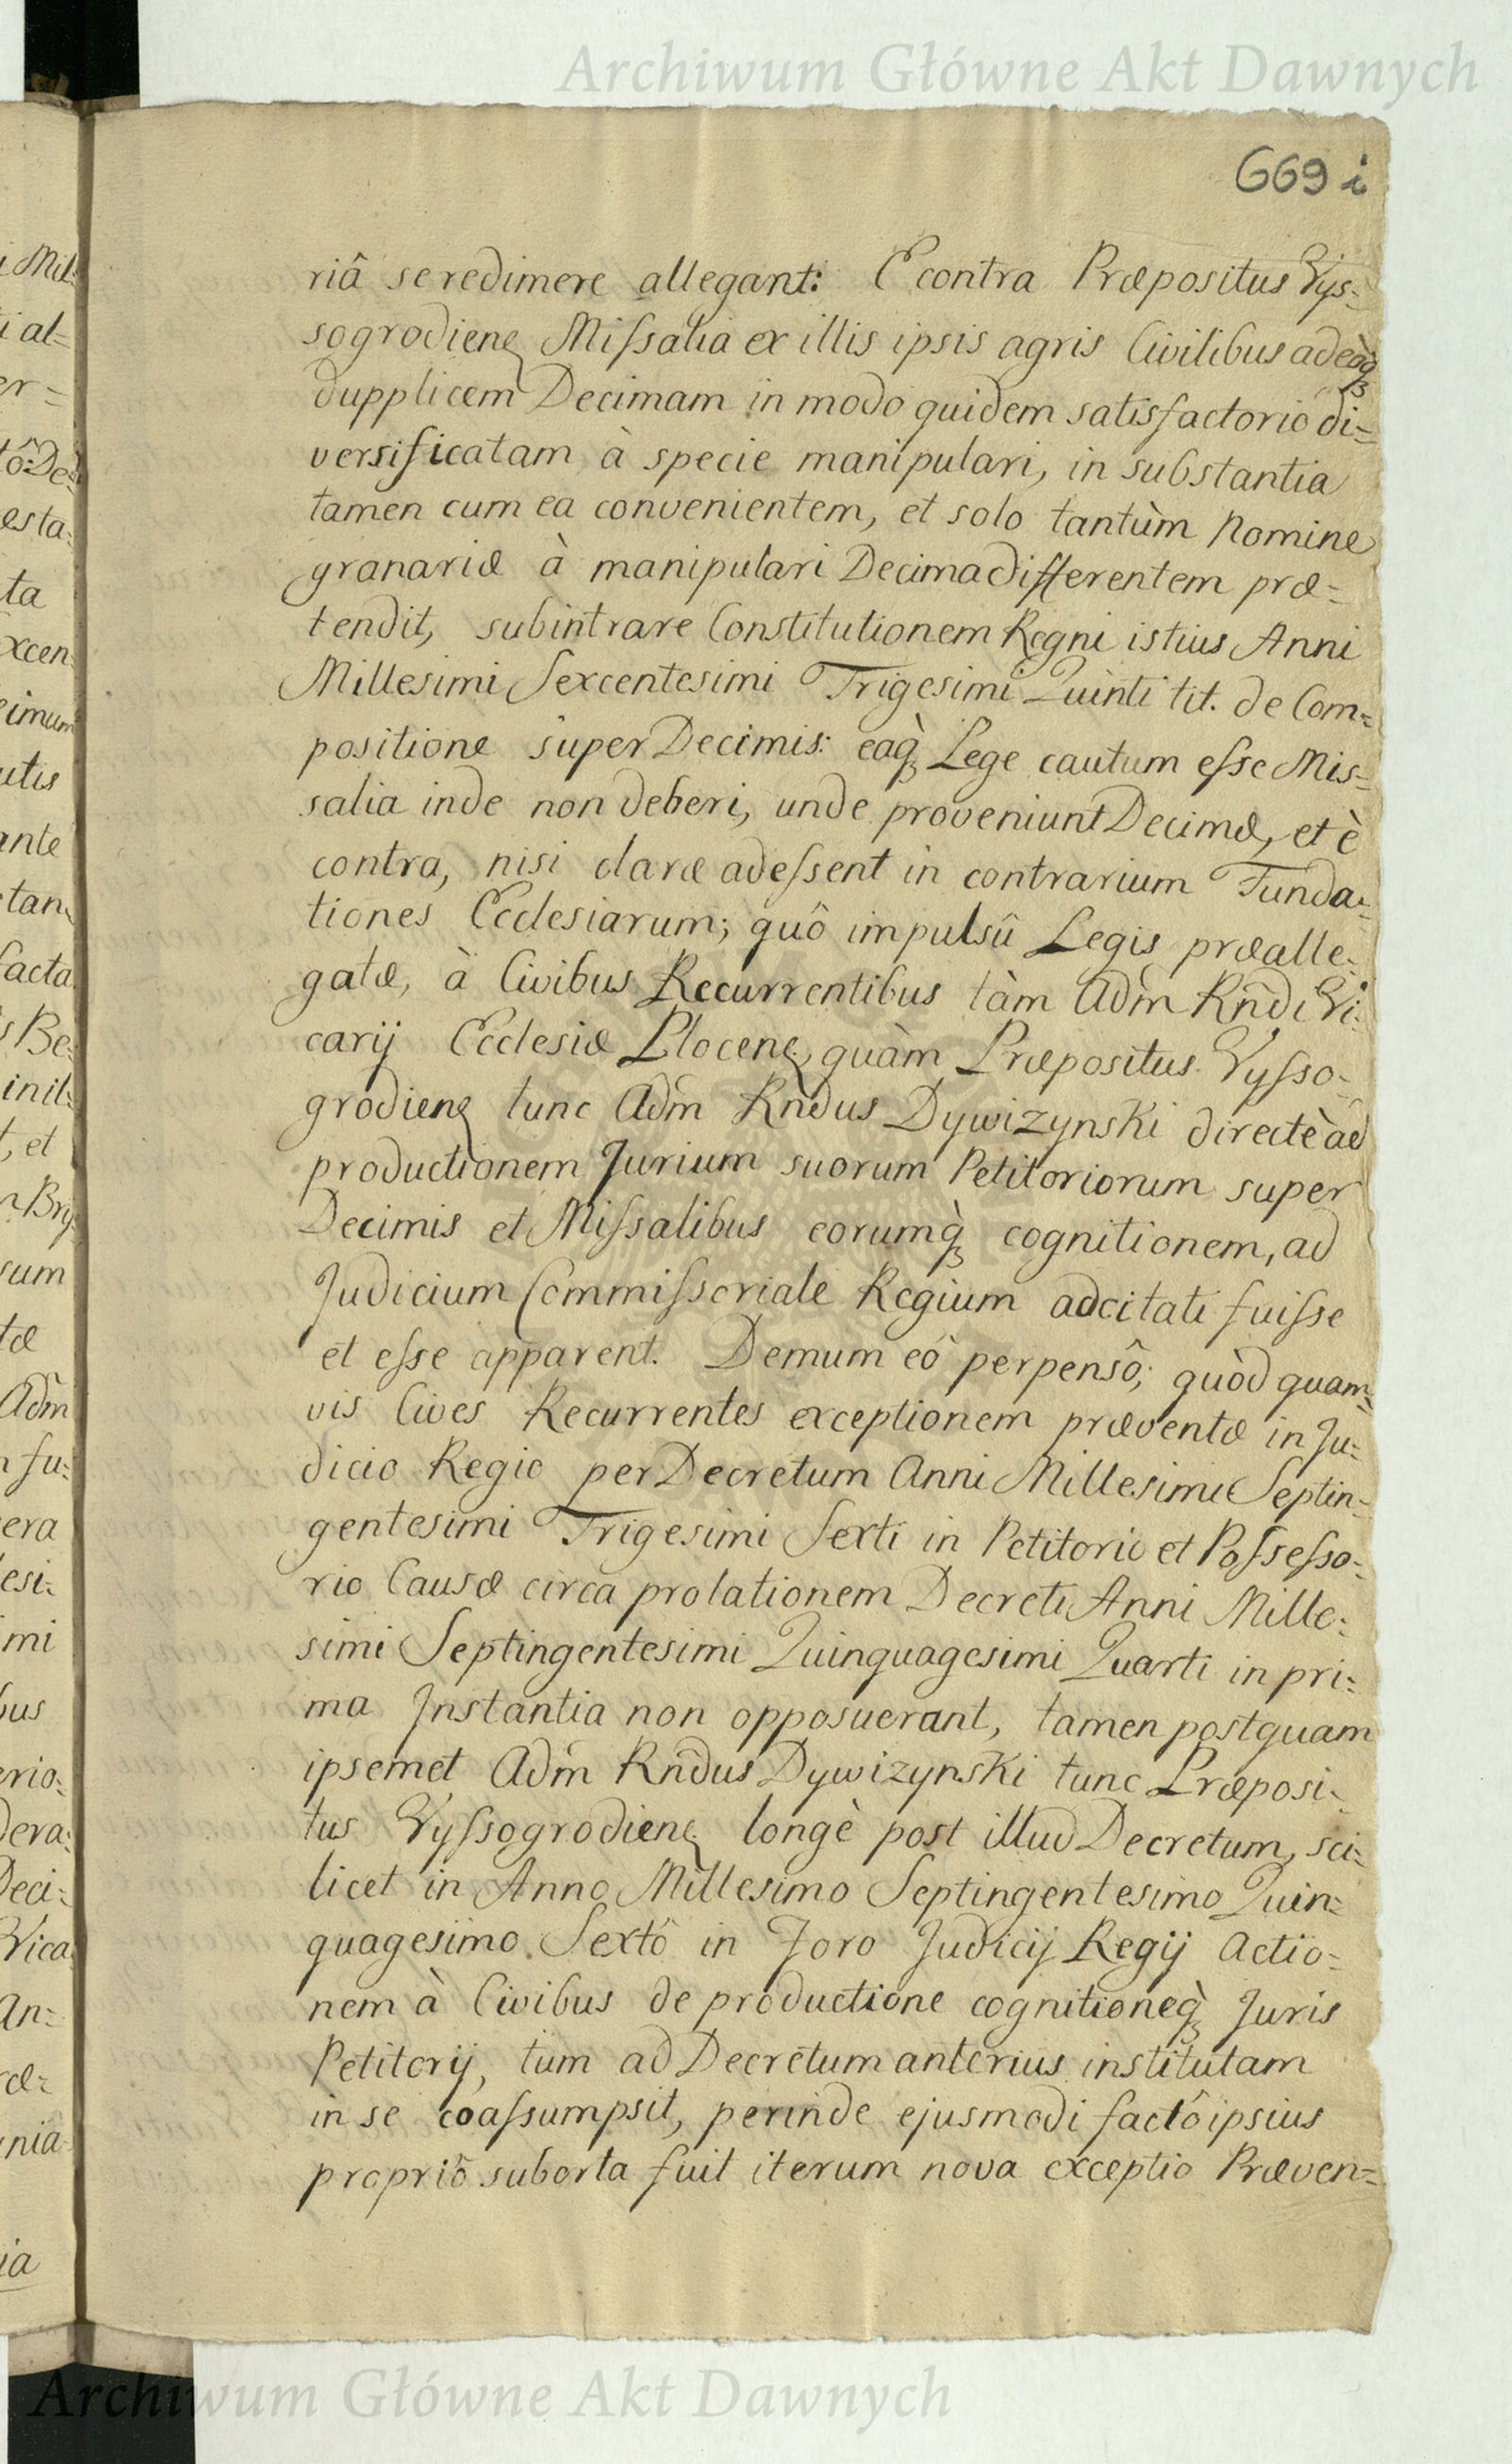 Archiwum Główne Akt Dawnych
669 i
riâ se redimere allegant: E contra Præpositus Vys=
sogrodienę Miſsalia ex illis ipsis agris Civilibus adeóq́ꝫ
dupplicem Decimam in modo quidem satisfactorio di=
versificatam à specie manipulari, in substantia
tamen cum ea convenientem, et solo tantùm Nomine
granariæ à manipulari Decima differentem præ=
tendit, subintrare Constitutionem Regni istius Anni
Millesimi Sexcentesimi Trigesimi Quinti tit. de Com=
positione super Decimis: eaq́ꝫ Lege cautum eſse Mis=
salia inde non deberi, unde proveniunt Decimæ, et è
contra, nisi claræ adeſsent in contrarium Funda=
tiones Ecclesiarum; quô impulsû Legis præalle=
gatæ, à Civibus Recurrentibus tàm Adm̃ Rñdi Vi=
carij Ecclesiæ Plocenę, quàm Præpositus Vyſso=
grodienę tunc Adm̃ Rñdus Dywizynski directè ad
productionem Jurium suorum Petitoriorum super
Decimis et Miſsalibus eorumq́ꝫ cognitionem, ad
Judicium Commiſsoriale Regium adcitati fuiſse
et eſse apparent. Demum eô perpensô; quòd quam=
vis Cives Recurrentes exceptionem præventæ in Ju=
dicio Regio per Decretum Anni Millesimi Septin=
gentesimi Trigesimi Sexti in Petitorio et Poſseſso=
rio Causæ circa prolationem Decreti Anni Mille=
simi Septingentesimi Quinquagesimi Quarti in pri=
ma Instantia non opposuerant, tamen postquam
ipsemet Adm̃ Rñdus Dywizynski tunc Præposi=
tus Vyſsogrodienę longè post illud Decretum, sci=
licet in Anno Millesimo Septingentesimo Quin=
quagesimo Sextô in Foro Judicij Regij Actio=
nem à Civibus de productione cognitioneq́ꝫ Juris
Petitorij, tum ad Decretum anterius institutam
in se coaſsumpsit, perinde ejusmodi factô ipsius
propriô suborta fuit iterum nova exceptio Præven=
Archiwum Główne Akt Dawnych